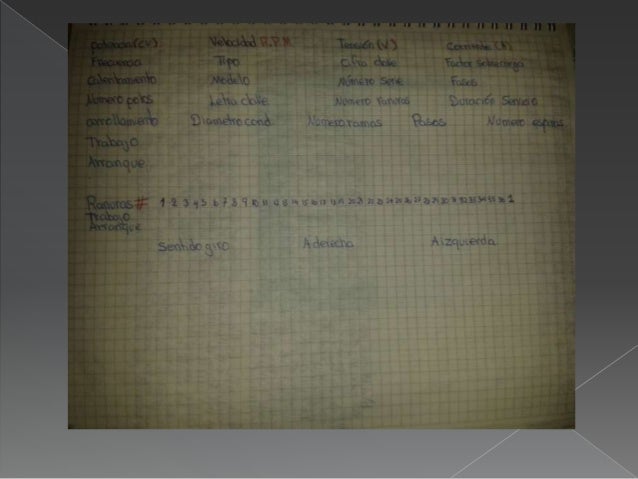 potencia (CV) Velocidad R.P.M Tensión (V) Corriente (A)
Frecuencia Tipo Cifra clave Factor sobrecarga
Calentamiento Modelo Número Serie Fases
Número polos Letra clave Número ranuras Duración Servicio
arrollamiento Diametro cond. Número ramas Pasos Número espiras
Trabajo
Arranque
Ranuras # 1 2 3 4 5 6 7 8 9 10 11 12 13 14 15 16 17 18 19 20 21 22 23 24 25 26 27 28 29 30 31 32 33 34 35 36 1
Trabajo
Arranque
Sentido giro A derecha A izquierda